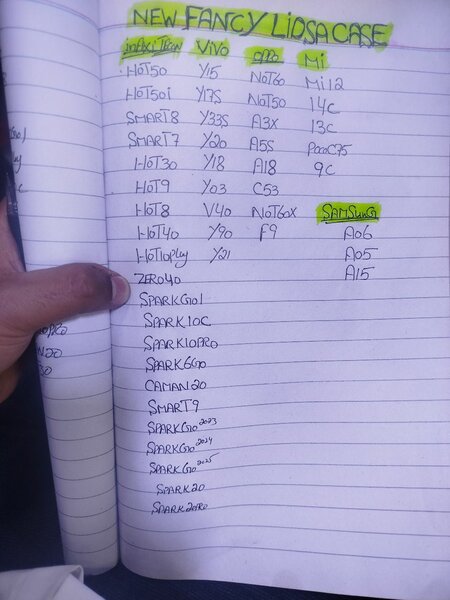 NEW FANCY LIDSA CASE
INFINIX TECNO
HOT50
HOT50i
SMART8
SMART7
HOT30
HOT9
HOT8
HOT40
HOT10Ply
ZERO40
SPARKGO1
SPARK10C
SPARK10PRO
SPARK6GO
CAMAN20
SMART9
SPARKGO2023
SPARKGO2024
SPARKGO2025
SPARK20
SPARK20PRO
ViVO
Y15
Y17S
Y33S
Y20
Y18
Y03
V40
Y90
Y21
oppo
NOT60
NOT50
A3X
A5S
A18
C53
NOT60X
F9
Mi
Mi12
14C
13C
PocoC75
9C
SAMSUNG
A06
A05
A15